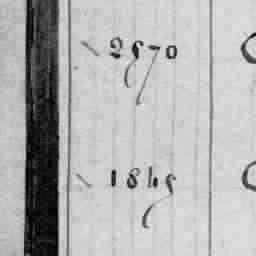 2570
1845